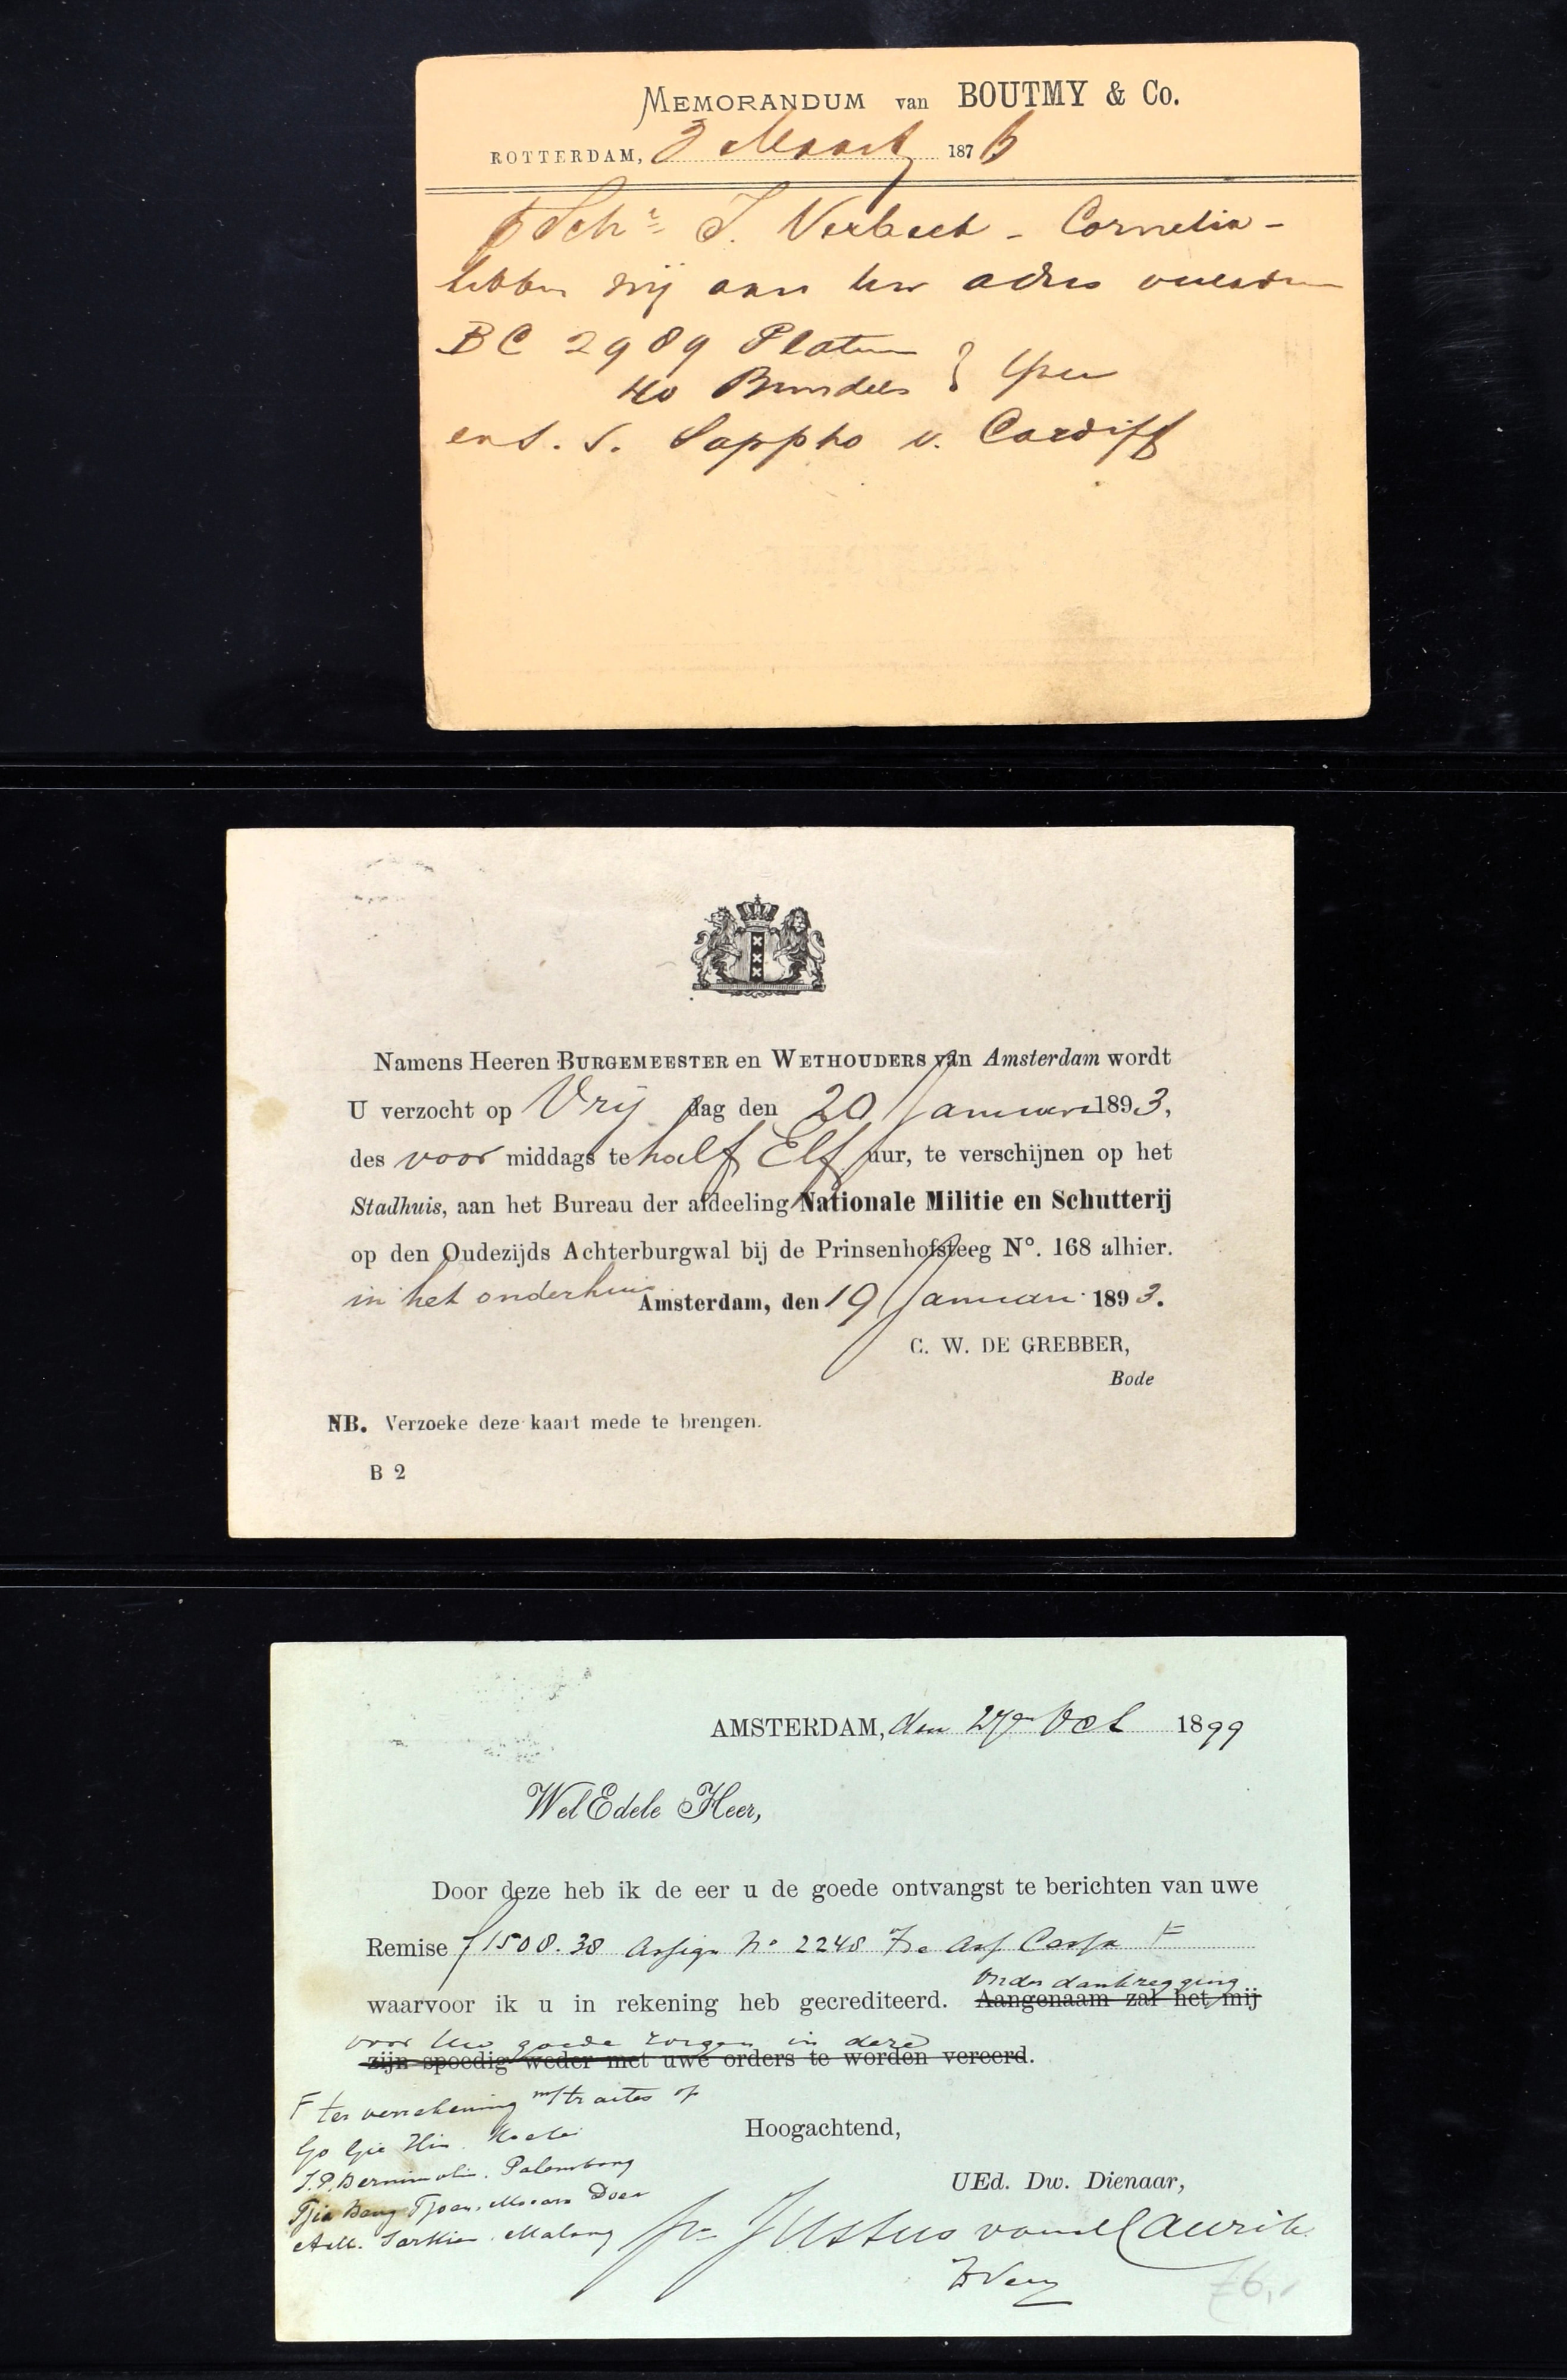 MEMORANDUM van BOUTMY & Co.
ROTTERDAM, 3 Maart 1876
Schr. J. Verbeek - Cornelia -
hebben wij aan uw adres
BC 2989 Platen
40 Bundels } Yzer
S. Sappho v. Cardiff
Namens Heeren BURGEMEESTER en WETHOUDERS van Amsterdam wordt
U verzocht op Vrij dag den 20 Januari 1893,
des voor middags te half Elf uur, te verschijnen op het
Stadhuis, aan het Bureau der afdeeling Nationale Militie en Schutterij
op den Oudezijds Achterburgwal bij de Prinsenhofsteeg No. 168 alhier.
in het onderhuis
Amsterdam, den 19 Januari 1893.
C. W. DE GREBBER,
Bode
NB. Verzoeke deze kaart mede te brengen.
B 2
AMSTERDAM, den 27en Oct 1899
WelEdele Heer,
Door deze heb ik de eer u de goede ontvangst te berichten van uwe
Remise f 1508.38 Assign No 2248 Ass Cassa F
onder dankzegging
waarvoor ik u in rekening heb gecrediteerd. Aangenaam zal het mij
voor Uw goede zorgen in deze
zijn spoedig weder met uwe orders te worden vereerd.
F ter verrekening traites op
Go Gie Hin
Hoogachtend,
Palembang
UEd. Dw. Dienaar,
Tjia Bang Tjoan, Moeara Doea
Sarkies Malang
Justus van Maurik
£6,-